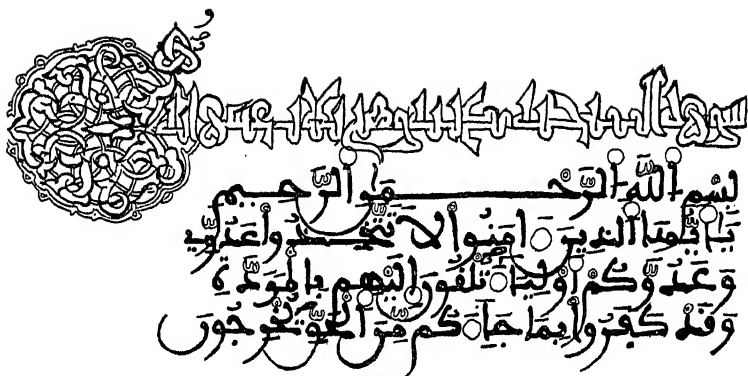 سورة الممتحنة مدنية وهي عشرة
بِسْمِ اَ۬للَّهِ اَ۬لرَّحْمَٰنِ اَ۬لرَّحِيمِ
يَٰٓأَيُّهَا اَ۬لذِينَ ءَامَنُواْ لَا تَتَّخِذُواْ عَدُوِّے
وَعَدُوَّكُمْ أَوْلِيَآءَ تُلْقُونَ إِلَيْهِم بِالْمَوَدَّةِ
وَقَدْ كَفَرُواْ بِمَا جَآءَكُم مِّنَ اَ۬لْحَقِّ يُخْرِجُونَ